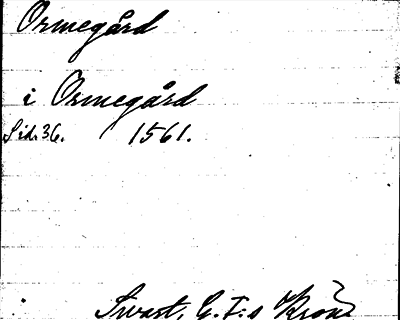 Ormegård
i Ormegård
Sid. 36. 1561.
Swart, G. I:s Krön